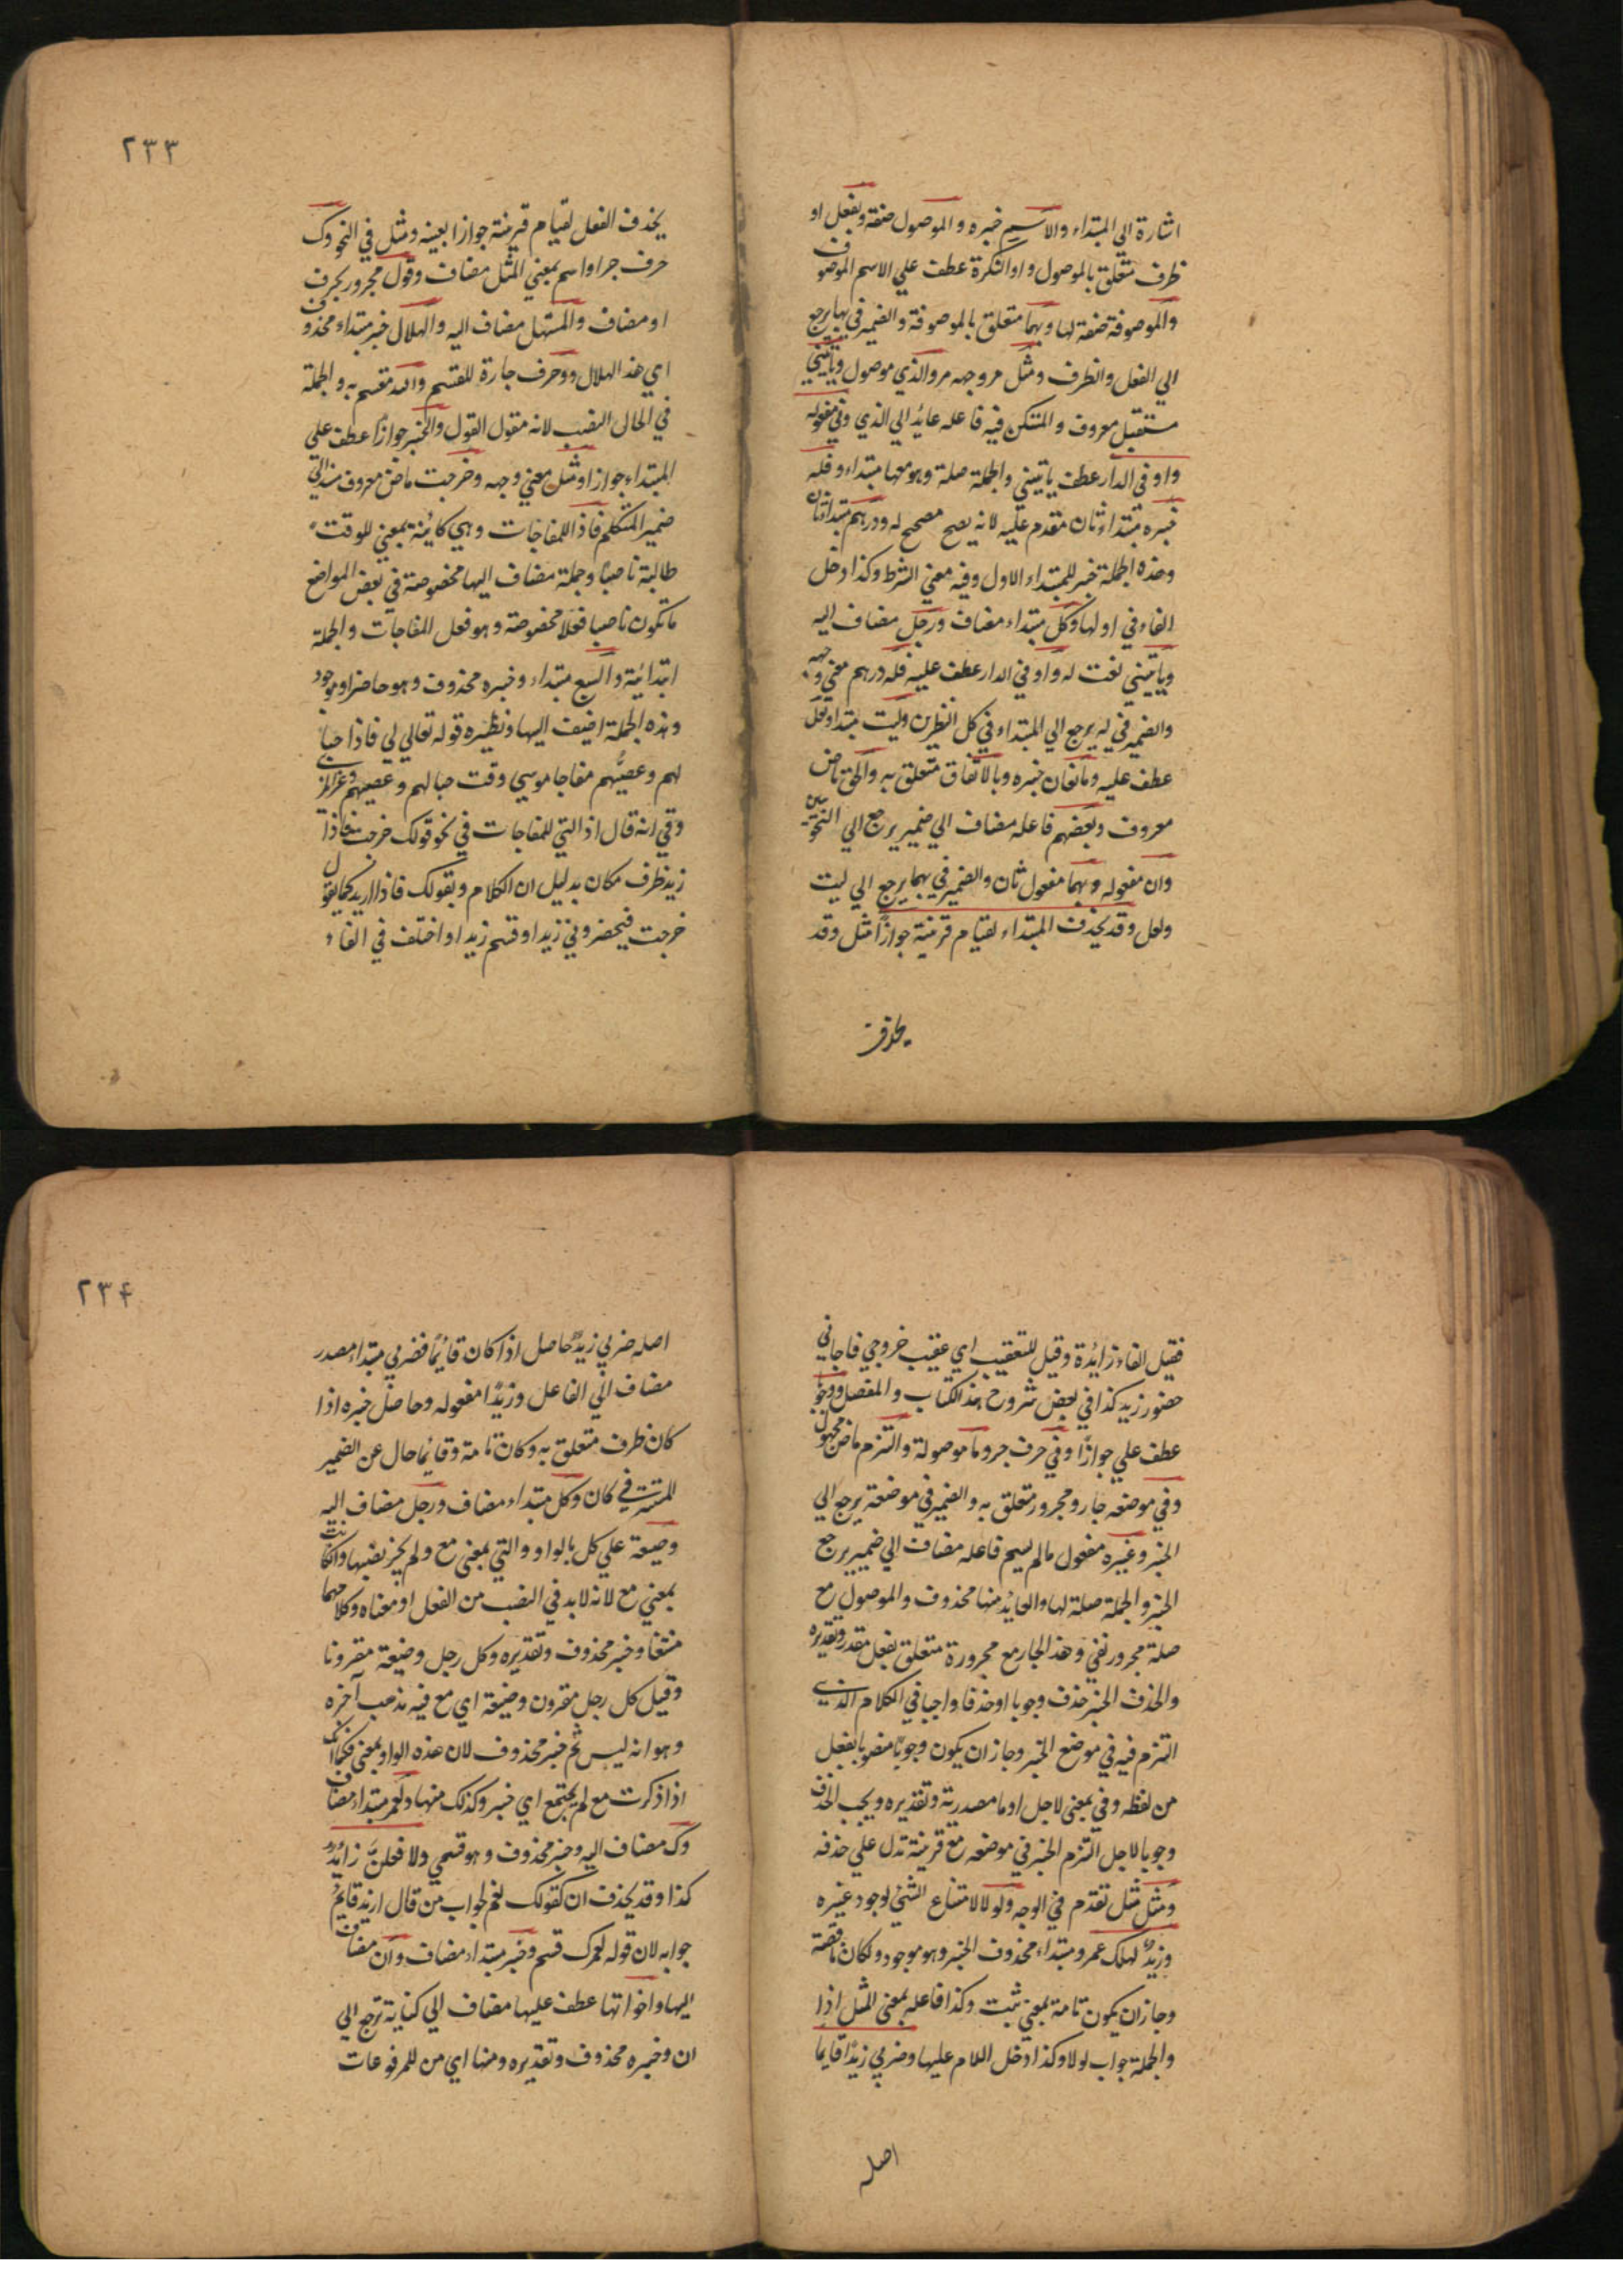 اشارة الي المبتداء والاسم خبره والموصول صفة وبفعل او
ظرف متعلق بالموصول واو النكرة عطف علي الاسم الموصوف
والموصوفة صفة لها وبهما متعلق بالموصوفة والضمير في بها يرجع
الي الفعل والظرف ومثل مر وجهه مر والذي موصول وياتيني
مستقبل معروف والمتكن فيه فاعله عايد الي الذي وني مفعوله
واو في الدار عطف ياتيني والجملة صلة وهو معها مبتداء وفله
خبره مبتداء ثان مقدم عليه لانه يصح مصحح له ودرهم مبتدا ثان
وهذه الجملة خبر للمبتداء الاول وفيه معني الشرط وكذا دخل
الفاء في اولها وكل مبتداء مضاف ورجل مضاف اليه
وياتيني نعت له واو في الدار عطف عليه فله درهم معني وجهه
والضمير في له يرجع الي المبتداء في كل النظرين وليت مبتدا ولعل
عطف عليه ومانعان خبره وبالاتفاق متعلق به والحق ماض
معروف وبعضهم فاعله مضاف الي ضمير يرجع الي النحويين
وان مفعوله وبهما مفعول ثان والضمير في بهما يرجع الي ليت
ولعل وقد يحذف المبتداء لقيام قرينة جوازًا مثل وقد
يحذف
٢٣٣
يحذف الفعل لقيام قرينة جوازا بعينه ومثل في النحو وك
حرف جر او اسم بمعني المثل مضاف وقول مجرور بحرف
او مضاف والمستهل مضاف اليه والهلال خبر مبتداء محذوف
اي هذا الهلال وو حرف جارة للقسم والله مقسم به والجملة
في الحال النصب لانه مقول القول والخبر جوازًا عطف علي
المبتداء جوازا ومثل معني وجهه وخرجت ماض معروف مسند الي
ضمير المتكلم فاذا للمفاجات وهي كاينة بمعني للوقت
طالبة ناصبًا وجملة مضاف اليها مخصوصة في بعض المواضع
ما تكون ناصبا فعلا مخصوصة وهو فعل المفاجات والجملة
ابتدائية والسبع مبتداء وخبره محذوف وهو حاضر او موجود
وهذه الجملة اضيف اليها ونظيره قوله تعالي لي فاذا حبا
لهم وعصيُّهم مفاجا موسي وقت حبالهم وعصيهم وعن الز
وقي انه قال اذا التي للمفاجات في نحو قولك خرجت فاذا
زيد ظرف مكان بدليل ان الكلام وبقولك فاذا اريد كما يقول
خرجت فيحضروني زيد او قثم زيد او اختلف في الفاء
فقيل الفاء زائدة وقيل للتعقيب اي عقيب خروجي فاجاني
حضور زيد كذا في بعض شروح هذا الكتاب والمفصل ووجوبًا
عطف علي جوازًا وفي حرف جر وما موصولة والتزم ماض مجهول
وفي موضعه جار ومجرور متعلق به والضمير في موضعه يرجع الي
الخبر وغيره مفعول ما لم يسم فاعله مضاف الي ضمير يرجع
الخبر والجملة صلة لها والعايد منها محذوف والموصول مع
صلة مجرور نفي وهذا الجار مع مجرورة متعلق بفعل مقدر وتقديره
والحذف الخبر حذف وجوبا او حذفا واجبا في الكلام الذي
التزم فيه في موضع الخبر وجاز ان يكون وجوبًا منصوبا بفعل
من لفظه وفي بمعني لاجل او ما مصدرية وتقديره ويجب الحذف
وجوبا لاجل التزم الخبر في موضعه مع قرينة تدل علي حذفه
ومثل مثل تقدم في الوجه ولولا لامتناع الشئ لوجود غيره
وزيدٌ لهلك عمرو مبتداء محذوف الخبر وهو موجود ولكان ناقصة
وجاز ان يكون تامة بمعني ثبت وكذا فاعله بمعني المثل اذا
والجملة جواب لولا وكذا دخل اللام عليها وضربي زيدًا قايما
اصله
٢٣۴
اصله ضربي زيدًا حاصل اذا كان قائمًا فضربي مبتداء مصدر
مضاف الي الفاعل وزيدًا مفعوله وحاصل خبره اذا
كان ظرف متعلق به وكان تامة وقايمًا حال عن الضمير
المستتر في كان وكل مبتداء مضاف ورجل مضاف اليه
وضيعة علي كل بالواو والتي بمعني مع ولم يجز نصبها وان كانت
بمعني مع لانه لا بد في النصب من الفعل او معناه وكلاهما
منتفا وخبر محذوف وتقديره وكل رجل وضيعة مقرونا
وقيل كل رجل مقرون وضيعة اي مع فيه مذهب آخره
وهو انه ليس ثم خبر محذوف لان هذه الواو بمعني فكما انك
اذا ذكرت مع لم يجتمع اي خبر وكذلك منها ولعمر مبتداء مضاف
وك مضاف اليه وخبر محذوف وهو قسمي ولا فعلنَّ زائدٌ
كذا وقد يحذف ان كقولك لعم لجواب من قال ازيد قايمٌ
جوابه لان قوله لعمرك قسم وخبر مبتداء مضاف وان مضاف
اليها واخواتها عطف عليها مضاف الي كناية ترجع الي
ان وخبره محذوف وتقديره ومنها اي من المرفوعات